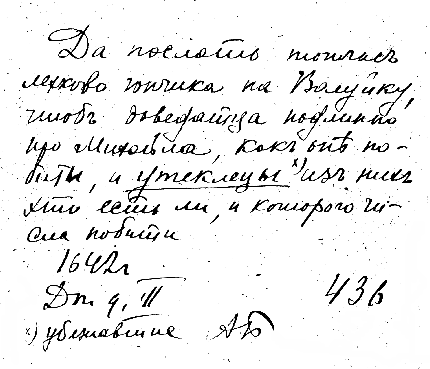 Да послать тотчасъ
лехково гончика на Валуйку,
чтобъ доведатца подлинно
про Михайла, какъ онѣ по-
биты, и утеклецы х) изъ нихъ
хто есть ли, и которого чи-
сла побити
1642г
Дт. ч. III 436
х) убежавшие АБ